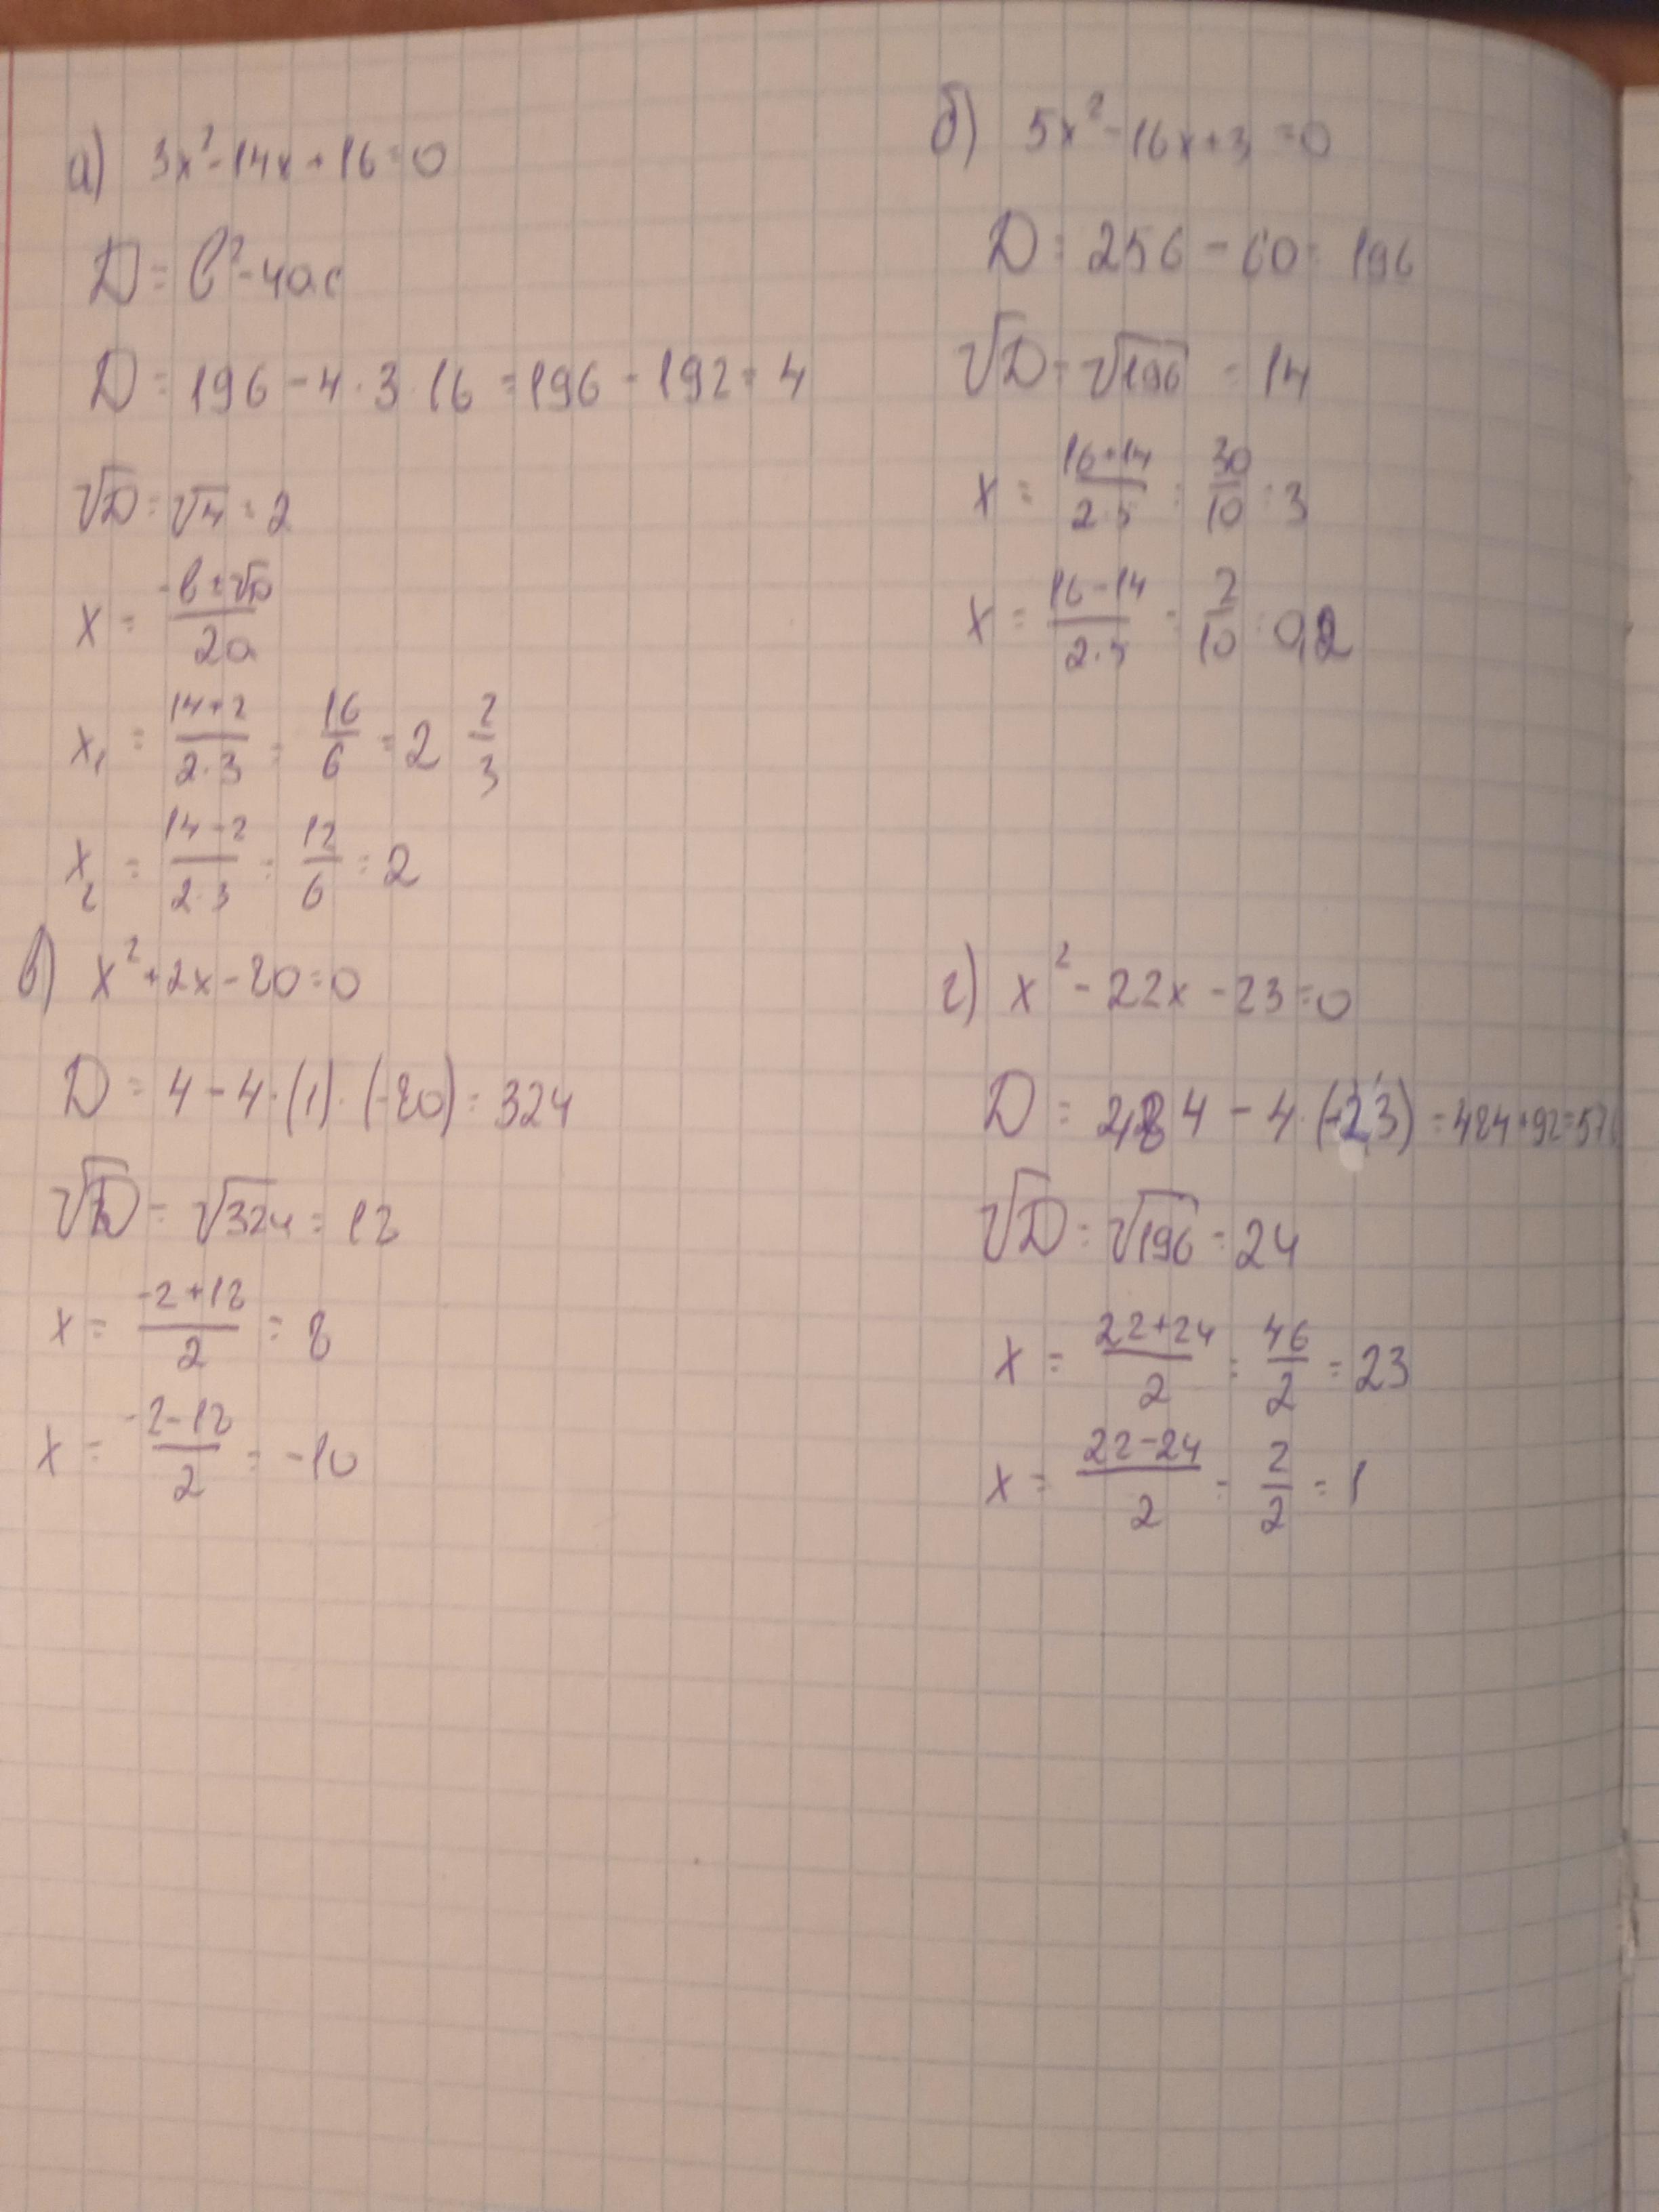 а) 3x²-14x+16=0
D = b²-4ac
D = 196 - 4·3·16 = 196 - 192 = 4
√D = √4 = 2
x = \frac{-b±√D}{2a}
x₁ = \frac{14+2}{2·3} = \frac{16}{6} = 2 \frac{2}{3}
x₂ = \frac{14-2}{2·3} = \frac{12}{6} = 2
б) 5x²-16x+3=0
D = 256 - 60 = 196
√D = √196 = 14
x = \frac{16+14}{2·5} = \frac{30}{10} = 3
x = \frac{16-14}{2·5} = \frac{2}{10} = 0,2
в) x²+2x-80=0
D = 4 - 4·(1)·(-80) = 324
√D = √324 = 18
x = \frac{-2+18}{2} = 8
x = \frac{-2-18}{2} = -10
г) x² - 22x - 23 = 0
D = 484 - 4·(-23) = 484+92=576
√D = √196 = 24
x = \frac{22+24}{2} = \frac{46}{2} = 23
x = \frac{22-24}{2} = \frac{2}{2} = 1